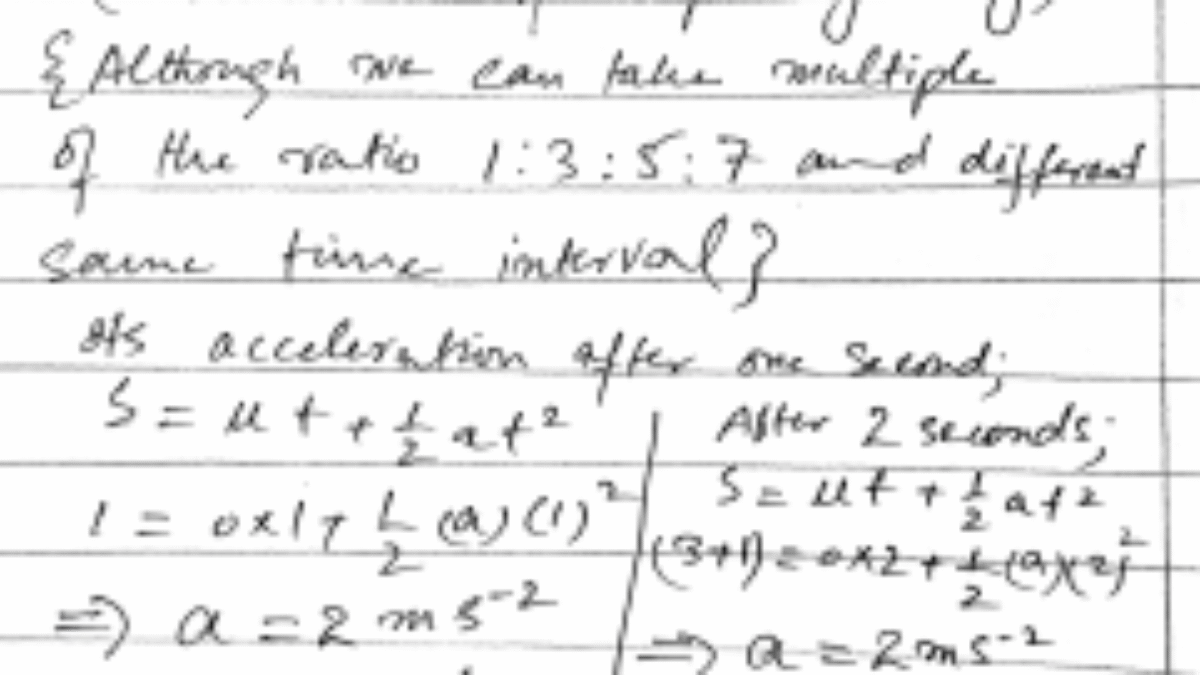 {Although we can take multiple
of the ratio 1:3:5:7 and different
same time interval}
Its acceleration after one second;
S = ut + 1/2 at²
1 = 0x1+ 1/2 (a) (1)²
⇒ a = 2 ms⁻²
After 2 seconds;
S = ut + 1/2 at²
(3+1) = 0x2 + 1/2 (a)(2)²
⇒ a = 2ms⁻²